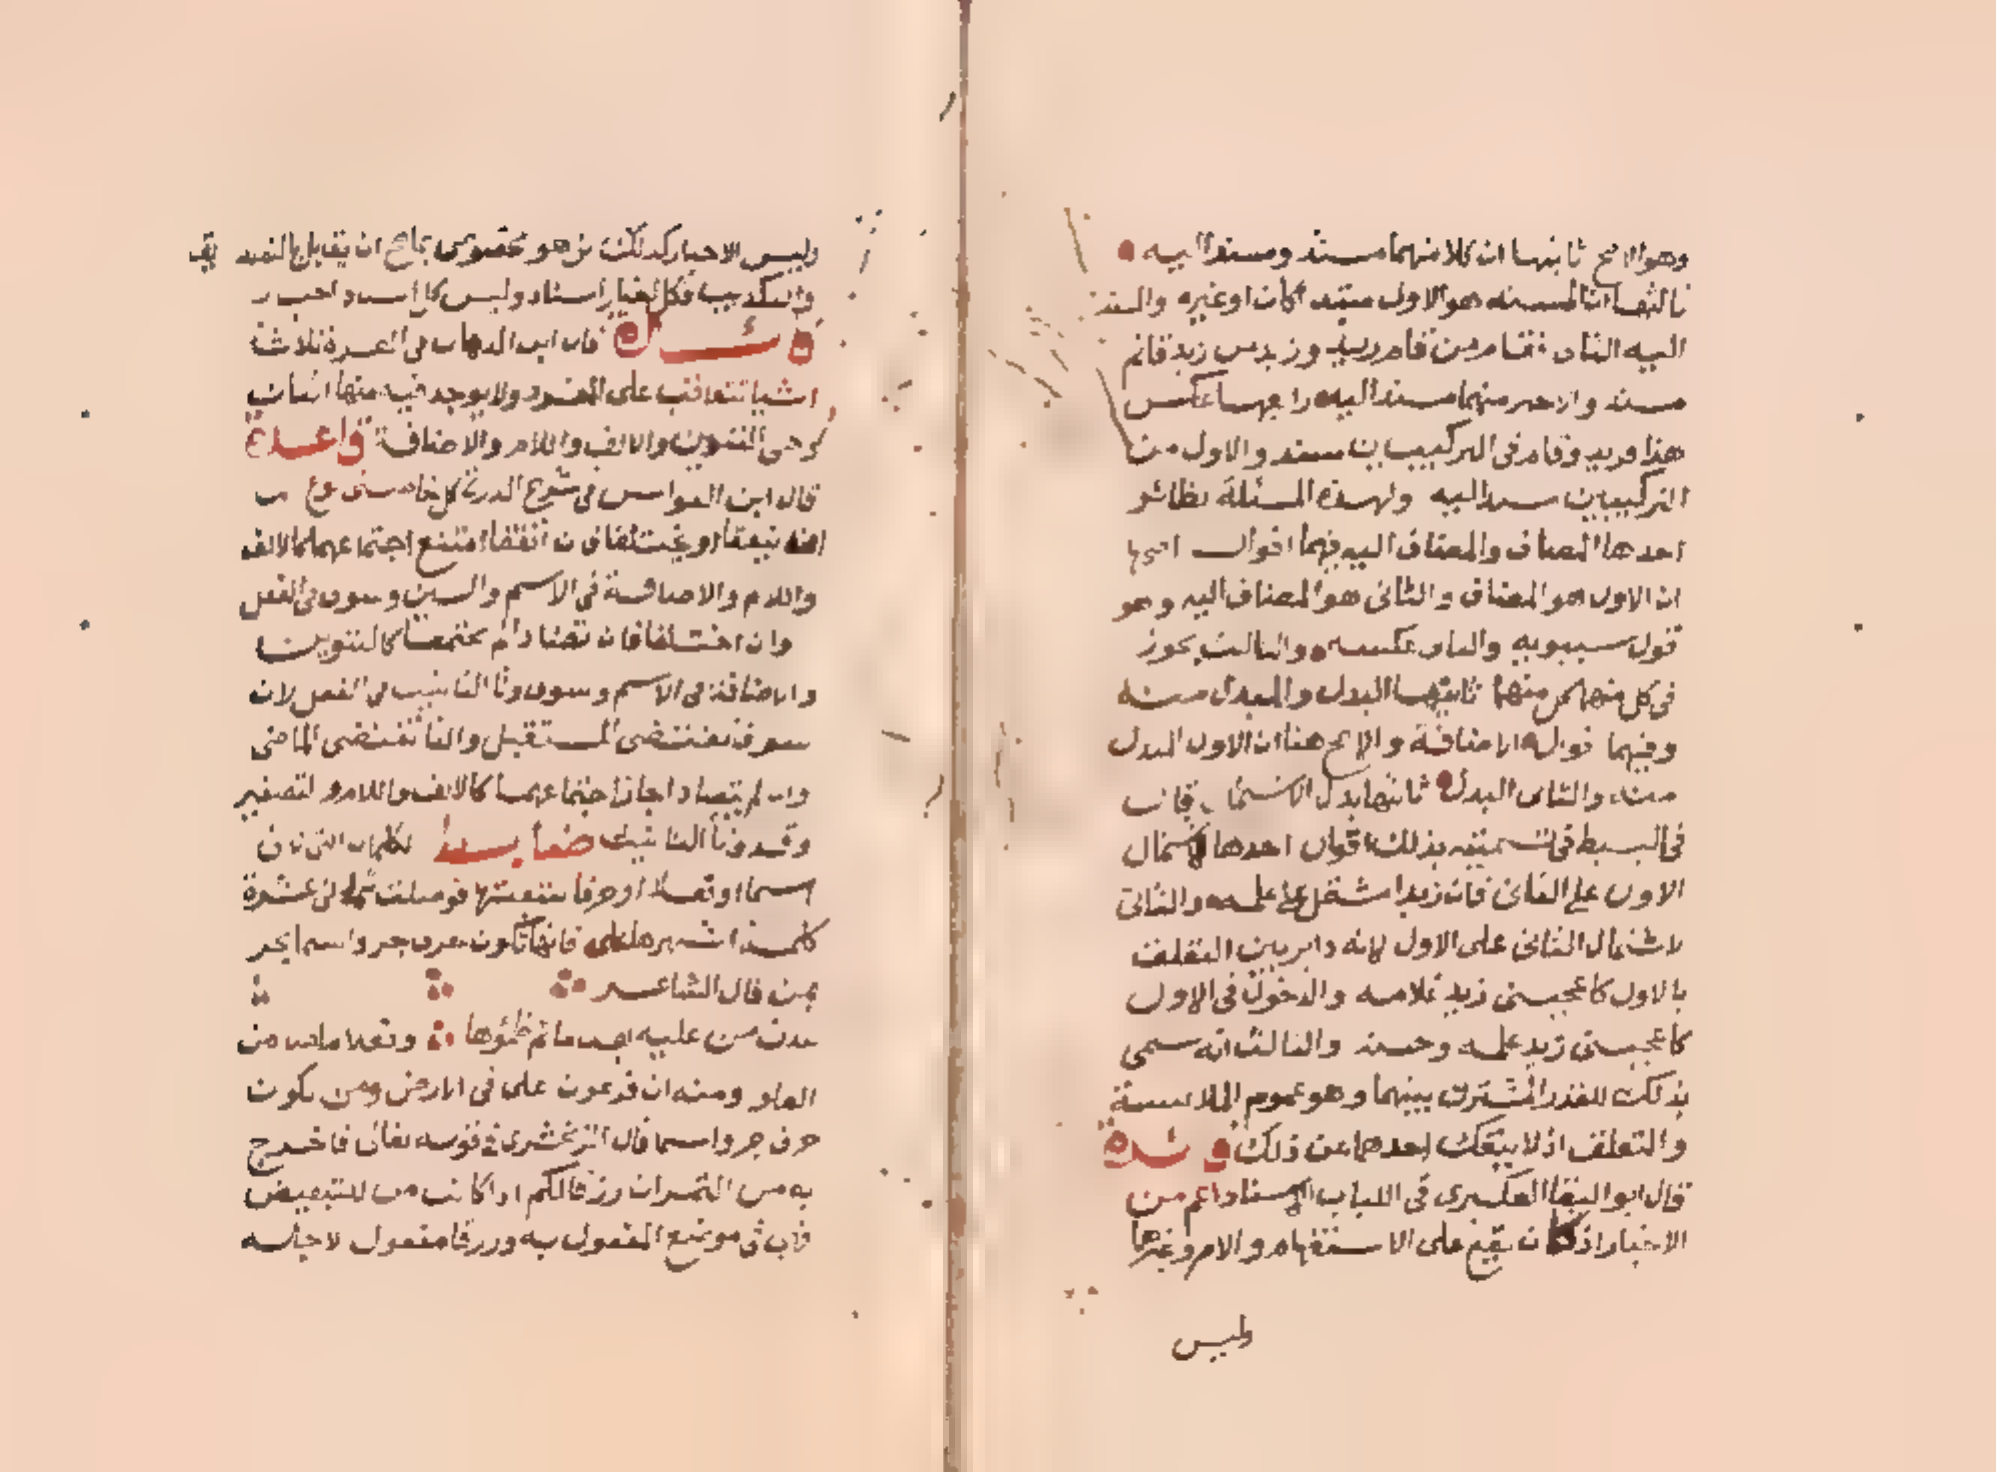 وهو الاصح ثانيها ان كلا منهما مسند ومسند اليه
ثالثها ان المسند هو الاول مبتدا كان او غيره والمسند
اليه الثاني فقام من قام زيد وزيد من زيد قائم
مسند والاخير منهما مسند اليه رابعها عكس
هذا فزيد وقام في التركيبين مسند والاول من
التركيبين مسند اليه ولهذه المسئلة نظائر
احدها المضاف والمضاف اليه فيهما اقوال اصحها
ان الاول هو المضاف والثاني هو المضاف اليه وهو
قول سيبويه والثاني عكسه والثالث يجوز
في كل منهما كل منهما ثانيها البدل والمبدل منه
وفيهما قولا الاضافة والاصح هنا ان الاول المبدل
منه والثاني البدل ثالثها بدل الاشتمال قال
في البسيط في تسميته بذلك اقوال احدها لاشتمال
الاول على الثاني فان زيدا مشتمل على علمه والثاني
لاشتمال الثاني على الاول لانه دائر بين التعلق
بالاول كاعجبني زيد غلامه والدخول في الاول
كاعجبني زيد علمه وحسنه والثالث انه سمي
بذلك للقدر المشترك بينهما وهو عموم الملابسة
والتعلق اذ لا ينفك احدهما عن ذلك فائدة
قال ابو البقا العكبري في اللباب الاسناد اعم من
الاخبار اذ كان يقع على الاستفهام والامر وغيرها
وليس
وليس الاخبار كذلك بل هو مخصوص بما صح ان يقابل بالتصديق
والتكذيب فكل اخبار اسناد وليس كل اسناد اخبارا
فائدة قال ابن الدهان في الغرة ثلاثة
اشيا تتعاقب على المفرد ولا يوجد فيه منها اثنان
وهي التنوين والالف واللام والاضافة قاعدة
قال ابن القواس في شرح الدرة كل خاصتي نوع
ان يتفقا او يختلفا فان اتفقا امتنع اجتماعهما كالالف
واللام والاضافة في الاسم والسين وسوف في الفعل
وان اختلفا فان تضادا لم يجتمعا كالتنوين
والاضافة في الاسم وسوف وتا التانيث في الفعل لان
سوف تقتضي المستقبل والتا تقتضي الماضي
وان لم يتضادا جاز اجتماعهما كالالف واللام والتصغير
وقد وتا التانيث ضابط الكلمات التي تاتي
اسما وفعلا وحرفا تتبعتها فوصلت ثماني عشرة
كلمة اشهرها على فانها تكون حرف جر واسما يجر
بمن قال الشاعر
غدت من عليه بعد ما تم ظمؤها وفعلا ماضيا من
العلو ومنه ان فرعون على في الارض ومن تكون
حرف جر واسما قال الزمخشري في قوله تعالى فاخرج
به من الثمرات رزقا لكم اذا كانت من للتبعيض
فهي في موضع المفعول به ورزقا مفعول لاجله